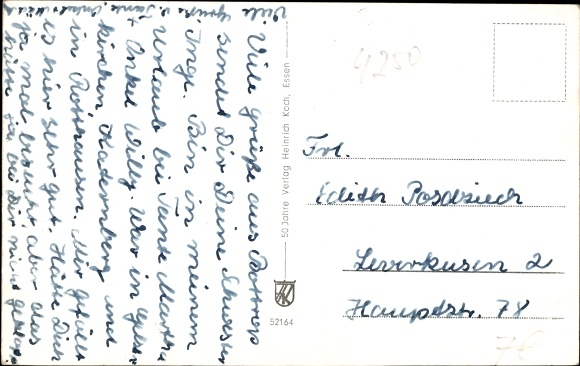 Viele Grüße aus Bottrop
sendet Dir Deine Schwester
Inge. Bin in meinem
Urlaub bei Tante Martha
+ Onkel Willy. War in Gelsen
kirchen, Katernberg und
in Rotthausen. Mir gefällt
es hier sehr gut. Hätte Dich
ja mal besucht aber das
hätte ja bei Dir nicht geklappt.
Viele Grüße v. Tante, Onkel
50 Jahre Verlag Heinrich Koch, Essen
52164
4250
Frl.
Edith Posdziech
Leverkusen 2
Hauptstr. 78